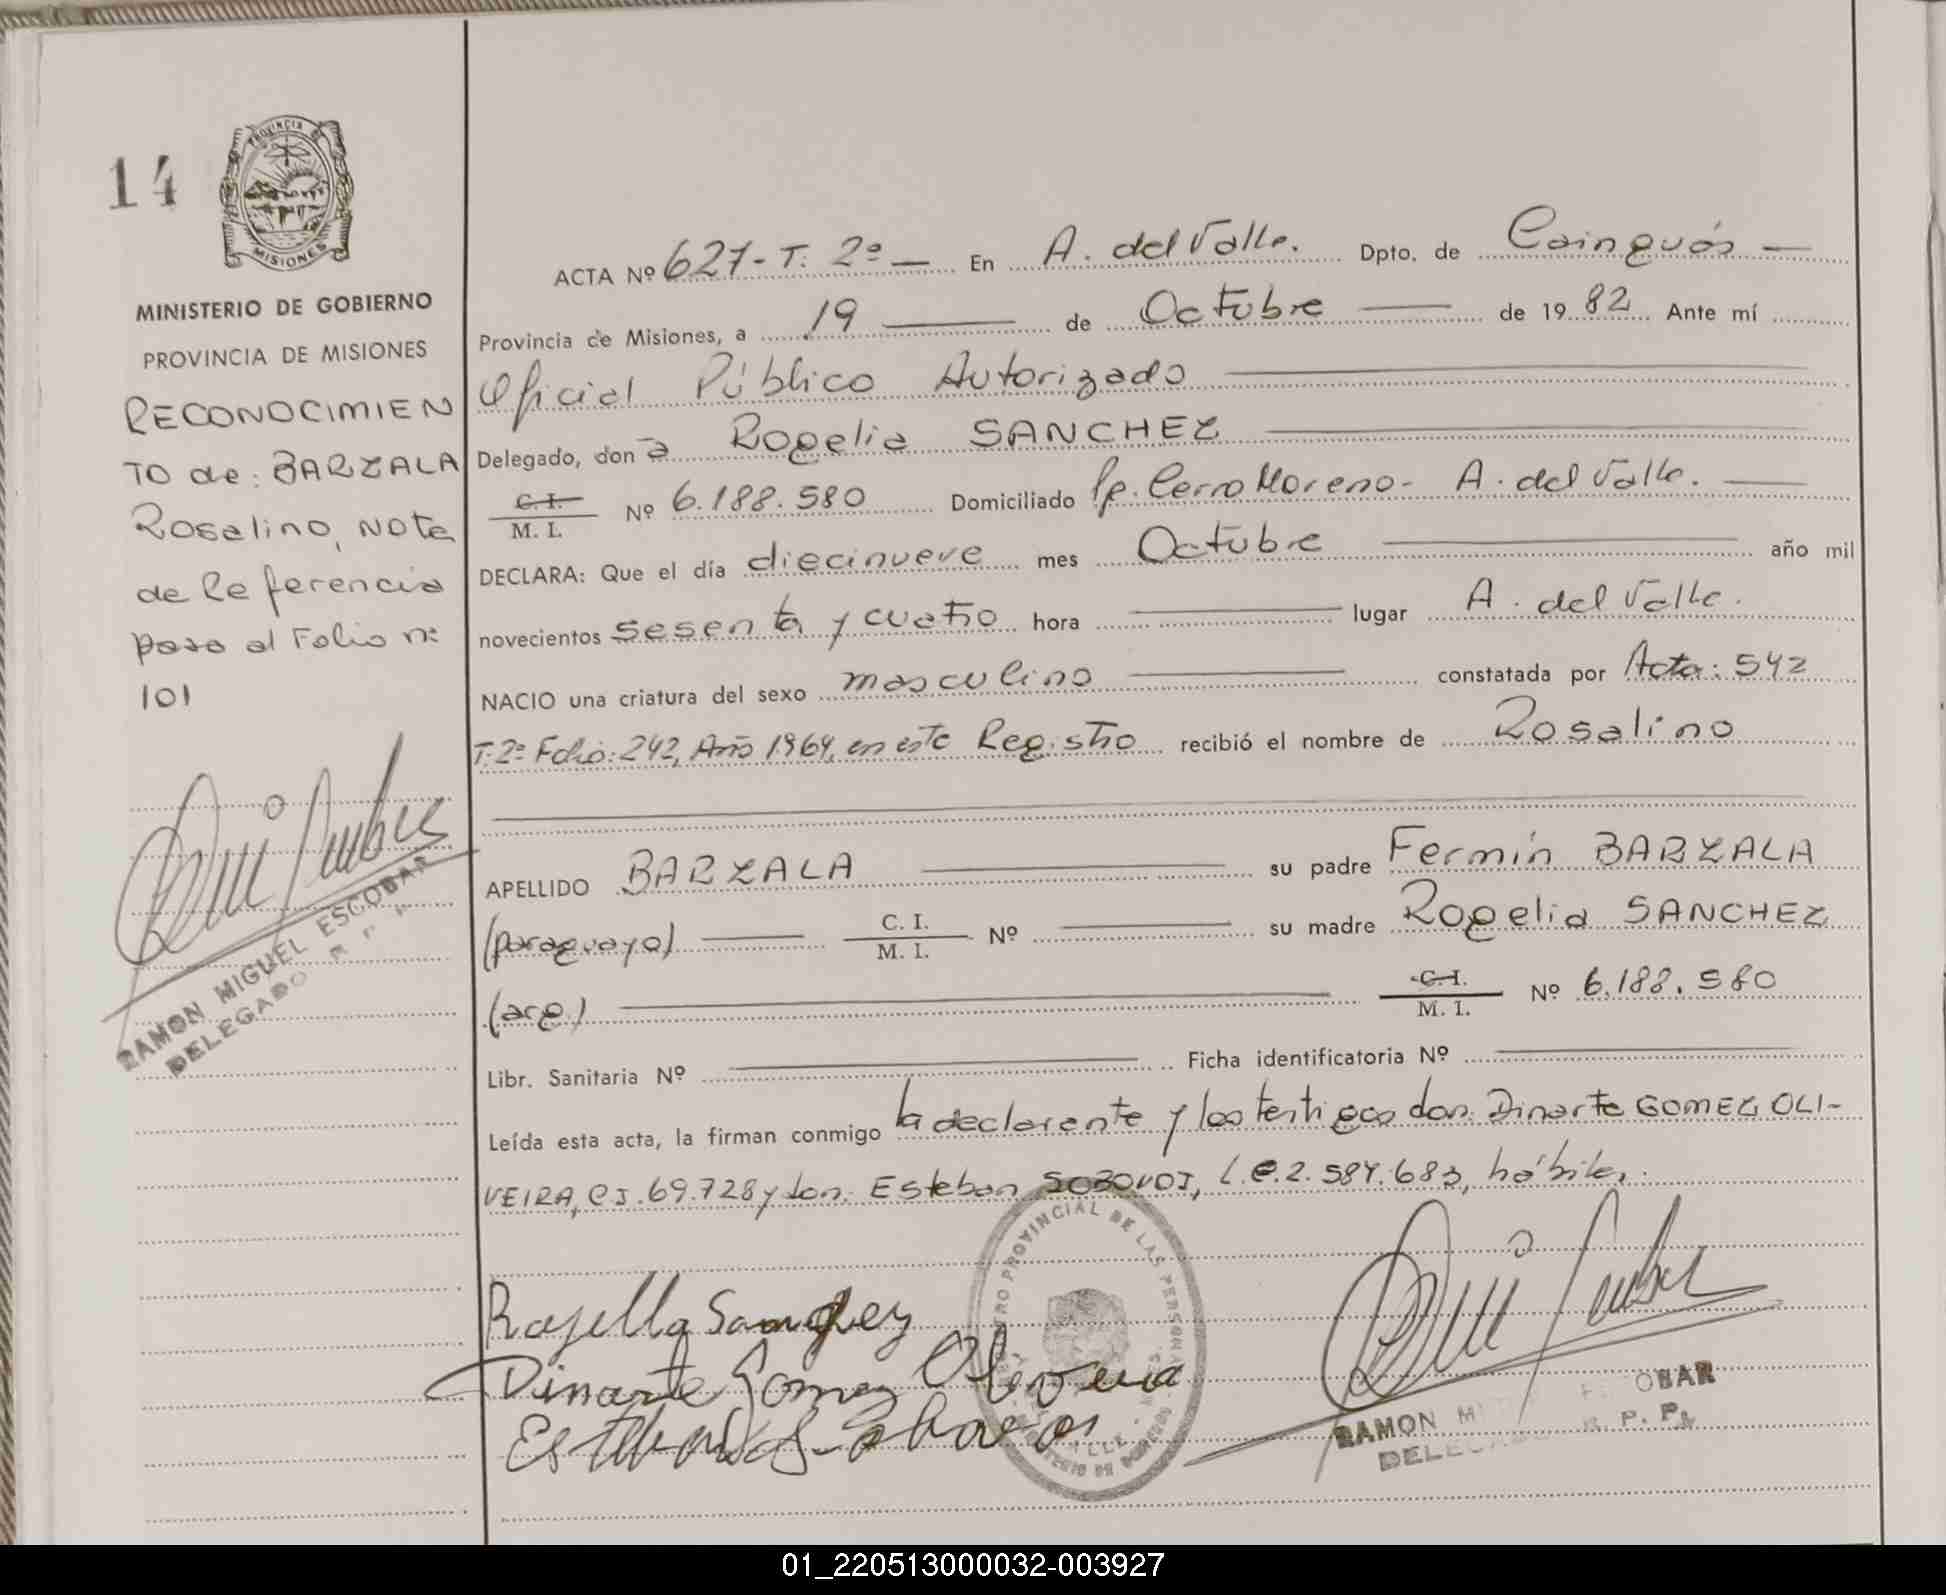 14
PROVINCIA
MISIONES
MINISTERIO DE GOBIERNO
PROVINCIA DE MISIONES
RECONOCIMIEN
TO de: BARZALA
Rosalino, Nota
de Referencia
pasa al Folio nº
101
RAMON MIGUEL ESCOBAR
DELEGADO R. P.
ACTA Nº 627-T. 2º — En A. del Valle. Dpto. de Cainguás —
Provincia de Misiones, a 19 — de Octubre — de 1982 Ante mí
Oficial Público Autorizado
Delegado, don a Rogelia SANCHEZ
C. I. / M. I. Nº 6.188.580 Domiciliado Pje. Cerro Moreno - A. del Valle. —
DECLARA: Que el día diecinueve mes Octubre — año mil
novecientos sesenta y cuatro hora — lugar A. del Valle.
NACIO una criatura del sexo masculino — constatada por Acta: 542
T. 2º Folio: 242, Año 1964, en este Registro recibió el nombre de Rosalino
APELLIDO BARZALA — su padre Fermín BARZALA
(paraguayo) — C. I. / M. I. Nº — su madre Rogelia SANCHEZ
(arg.) — C. I. / M. I. Nº 6.188.580
Libr. Sanitaria Nº — Ficha identificatoria Nº —
Leída esta acta, la firman conmigo la declarante y los testigos don: Dinarte GOMEZ OLI-
VEIRA, C.I. 69.728 y don: Esteban L.E. 2.584.683, hábiles.
Rogelia Sanchez
Dinarte Gomez Oliveira
Esteban
REGISTRO PROVINCIAL DE LAS PERSONAS
RAMON MI ESCOBAR
DELEGADO R. P. P.
01_220513000032-003927